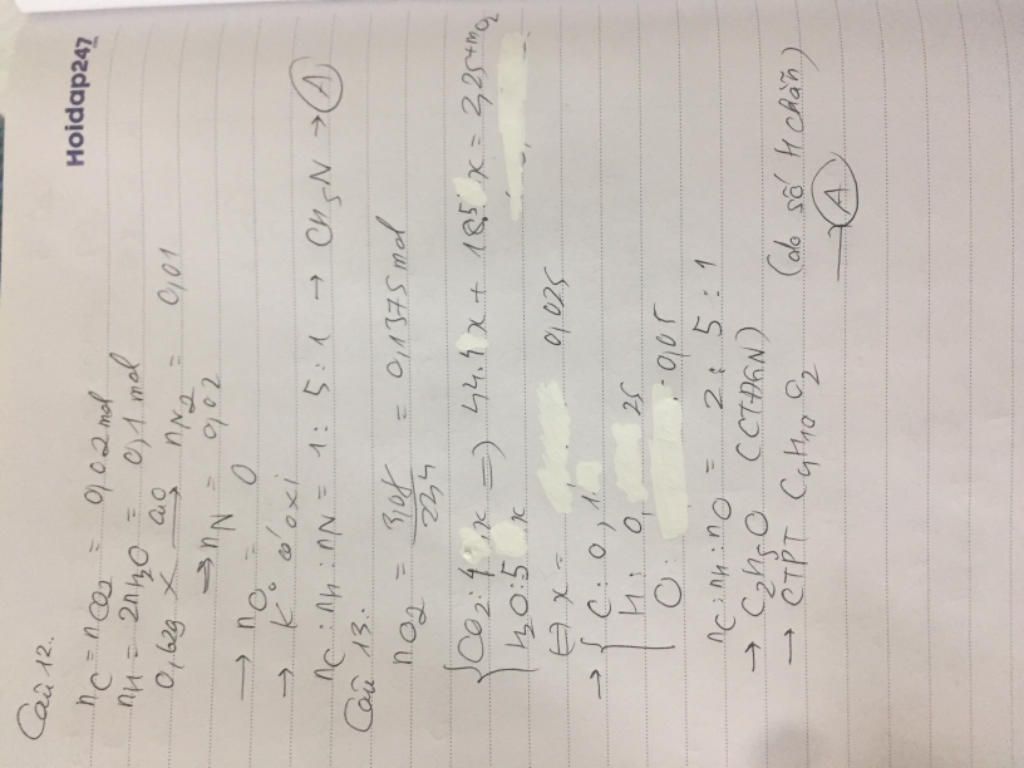 Hoidap247
Câu 12.
nC = nCO2 = 0,02 mol
nH = 2nH2O = 0,1 mol
0,62g X → nN2 = 0,01
→ nN = 0,02
→ nO = 0
→ K° có oxi
nC : nH : nN = 1 : 5 : 1 → CH5N → A
Câu 13:
nO2 = 3,08/22,4 = 0,1375 mol
{CO2: 4x => 44.4x + 18.5x = 2,25 + mO2
{H2O: 5x
⇔ x = 0,025
→ {C: 0,1
{H: 0,25
{O: 0,05
nC : nH : nO = 2 : 5 : 1
→ C2H5O (CTĐGN)
→ CTPT C4H10O2 (do số H chẵn)
→ A